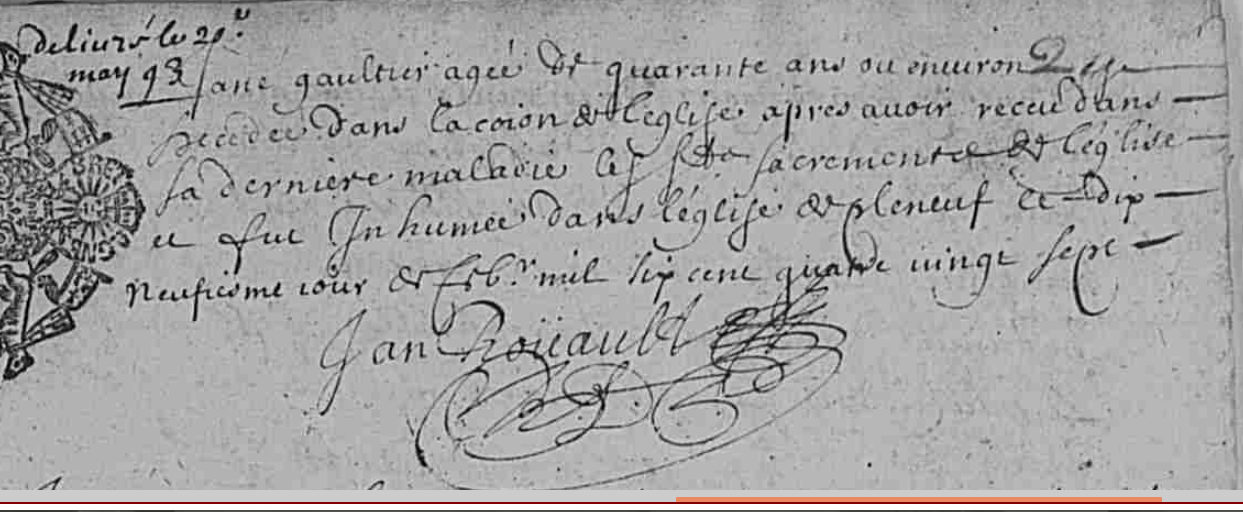 deliuré le 20e
may 93
Jane gaultier agée de quarante ans ou enuiron
decedee dans la coion de leglise apres auoir receu dans
sa derniere maladie les sts sacrements de léglise
et fut Inhumée dans léglise de pleneuf ce dix
neufiesme iour de febr mil six cent quatre vingt sept
Jan Roüault